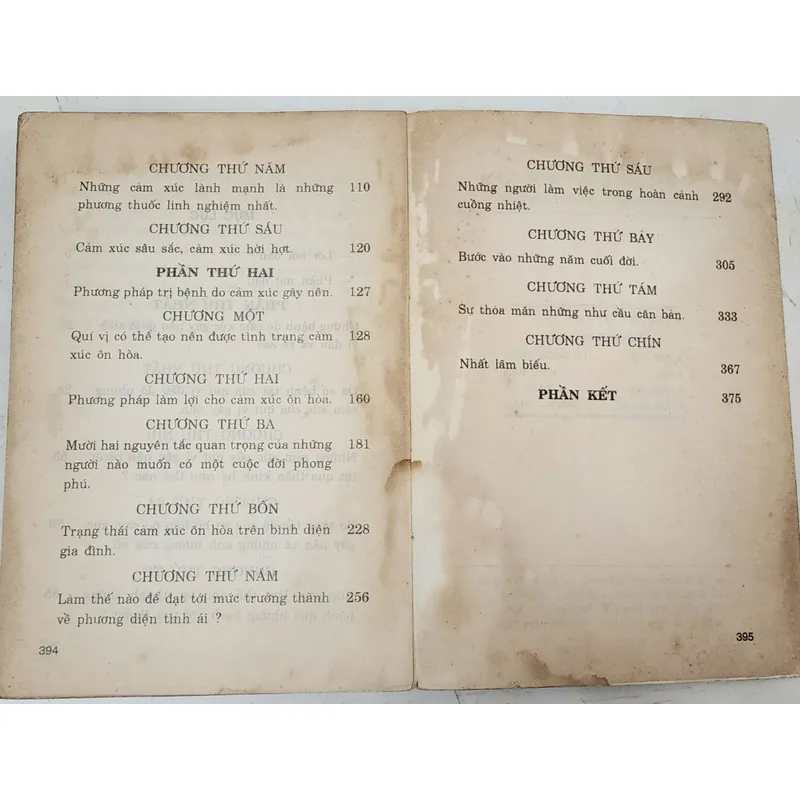 CHƯƠNG THỨ NĂM
Những cảm xúc lành mạnh là những 110
phương thuốc linh nghiệm nhất.
CHƯƠNG THỨ SÁU
Cảm xúc sâu sắc, cảm xúc hời hợt. 120
PHẦN THỨ HAI
Phương pháp trị bệnh do cảm xúc gây nên. 127
CHƯƠNG MỘT
Quí vị có thể tạo nên được tình trạng cảm 128
xúc ôn hòa.
CHƯƠNG THỨ HAI
Phương pháp làm lợi cho cảm xúc ôn hòa. 160
CHƯƠNG THỨ BA
Mười hai nguyên tắc quan trọng của những 181
người nào muốn có một cuộc đời phong
phú.
CHƯƠNG THỨ BỐN
Trạng thái cảm xúc ôn hòa trên bình diện 228
gia đình.
CHƯƠNG THỨ NĂM
Làm thế nào để đạt tới mức trưởng thành 256
về phương diện tình ái ?
394
CHƯƠNG THỨ SÁU
Những người làm việc trong hoàn cảnh 292
cuồng nhiệt.
CHƯƠNG THỨ BẢY
Bước vào những năm cuối đời. 305
CHƯƠNG THỨ TÁM
Sự thỏa mãn những như cầu căn bản. 333
CHƯƠNG THỨ CHÍN
Nhất lãm biểu. 367
PHẦN KẾT 375
395